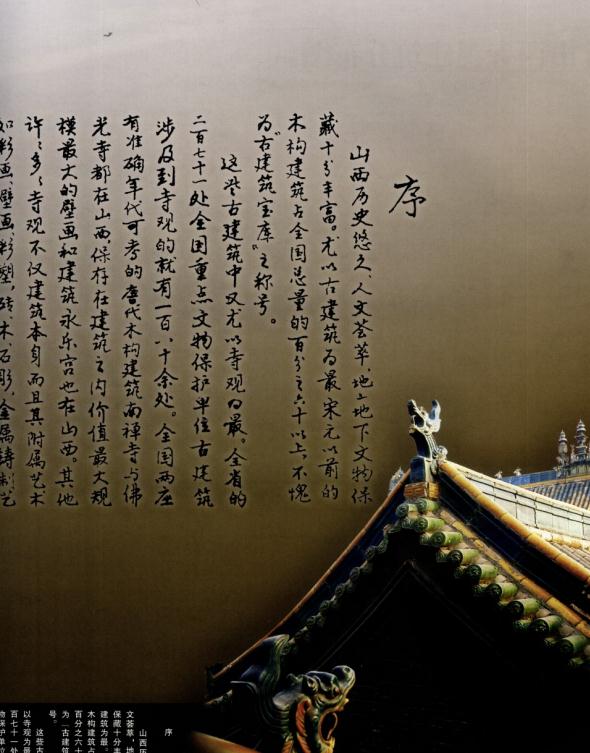 序
山西历史悠久、人文荟萃、地上地下文物保
藏十分丰富。尤以古建筑为最宋元以前的
木构建筑占全国总量的百分之六十以上,不愧
为“古建筑宝库”之称号。
这些古建筑中又尤以寺观为最。全省的
二百七十一处全国重点文物保护单位古建筑
涉及到寺观的就有一百八十余处。全国两座
有准确年代可考的唐代木构建筑南禅寺与佛
光寺都在山西,保存在建筑之内价值最大规
模最大的壁画和建筑永乐宫也在山西。其他
许许多多寺观不仅建筑本身而且其附属艺术
如彩画、壁画、彩塑,砖、木、石彫、金属铸制艺
序
山西历
文荟萃,地
保藏十分丰
建筑为最。
木构建筑占
百分之六十
为“古建筑
号。
这些古
以寺观为最
百七十一处
物保护单位